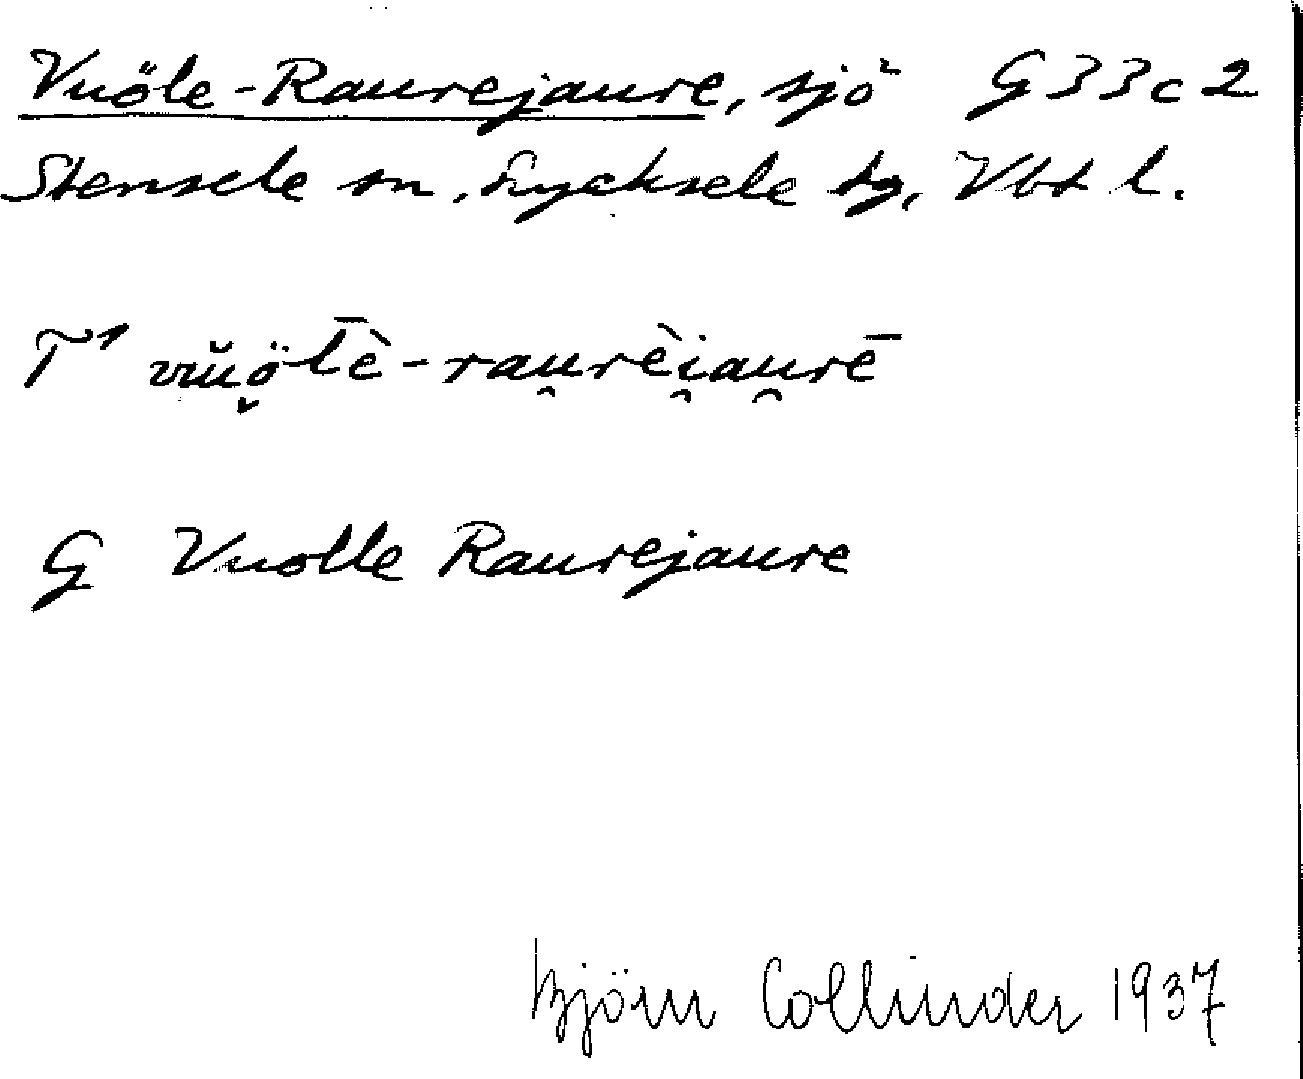 Vuöle-Raurejaure, sjö G33c2
Stensele sn, Lycksele tg, Vbt l.
T¹ vŭö̬l̄ḕ-rau̯rèi̯au̯rē
G Vuolle Raurejaure
Björn Collinder 1937